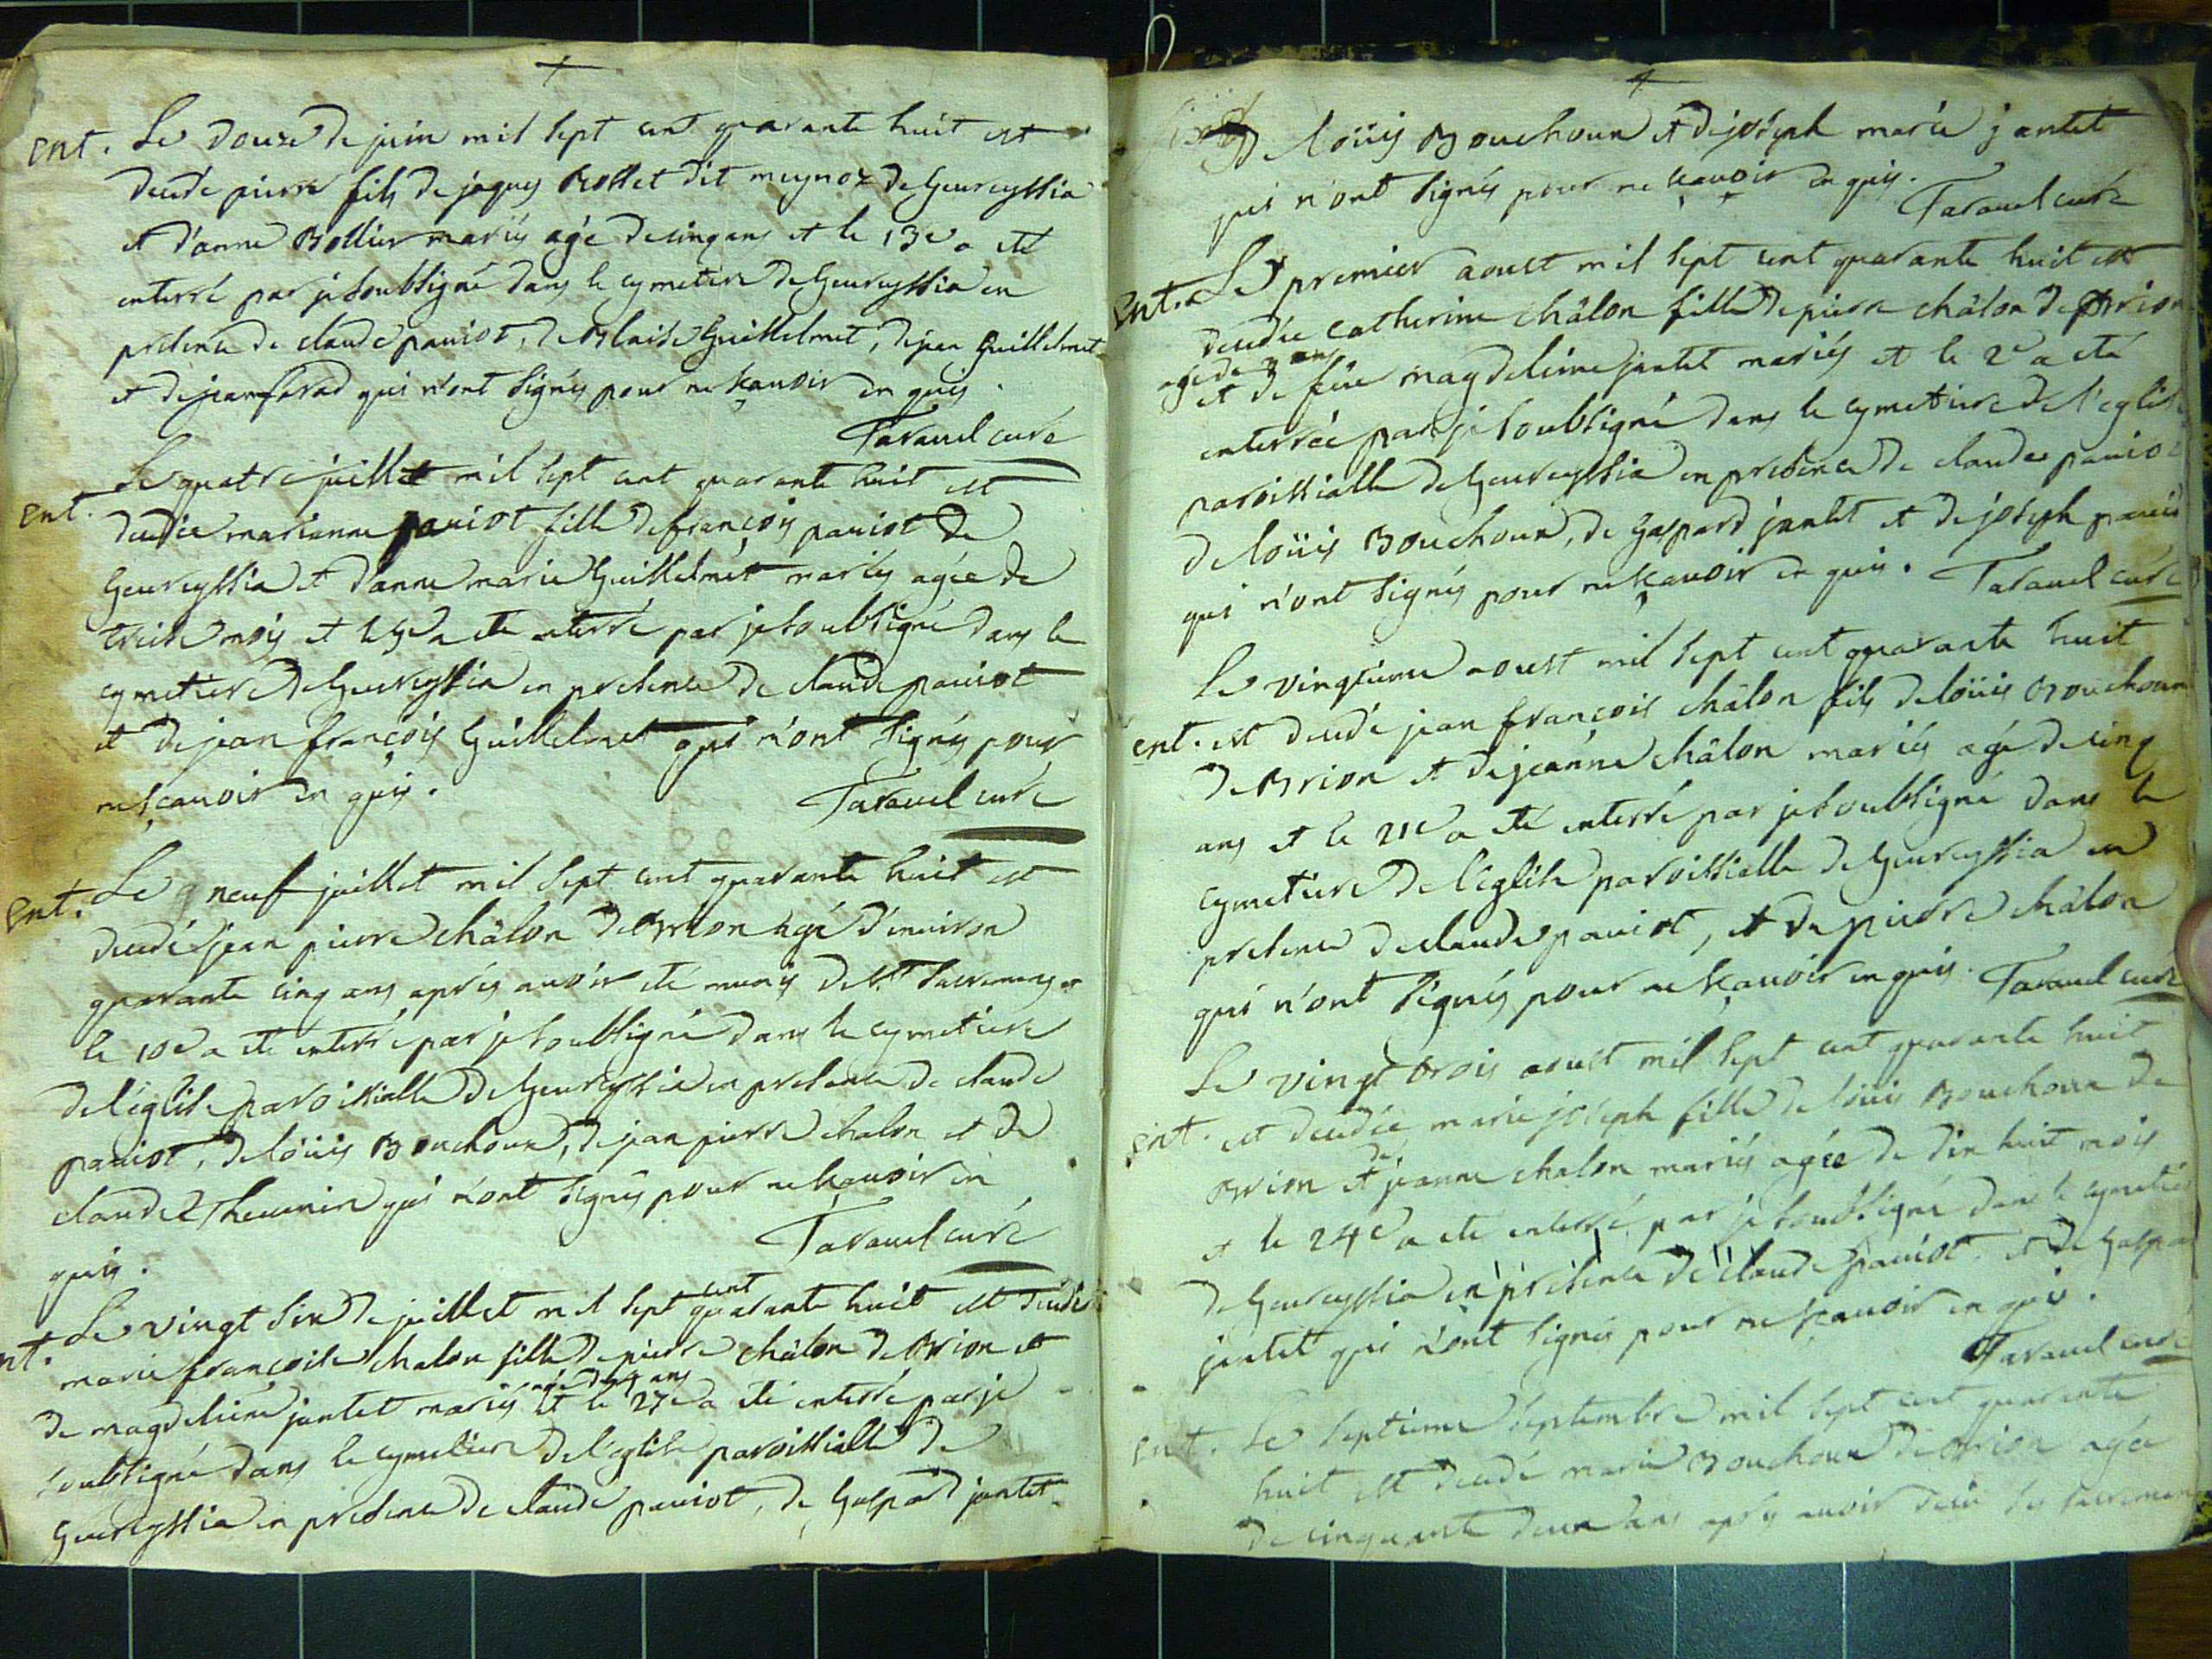 ent. Le douze de juin mil sept cent quarante huit est
decedé pierre fils de jaques Rollet dit meynoz de Geureyssia
et d'anne Bollier mariés agé de cinq ans et le 13e a eté
enterré par je soubsigné dans le cymetiere de Geureyssia en
presence de claude paviot, de Blaise Guillelmet, de jean Guillelmet
et de jean qui n'ont signés pour ne sçavoir en quis.
Taravel curé
ent. Le quatre juillet mil sept cent quarante huit est
decedée marianne paviot fille de françois paviot de
Geureyssia et d'anne marie Guillelmét mariés agée de
treise mois et le 5e a ete enterré par je soubsigné dans le
cymetiere de Geureyssia en presence de claude paviot
et de jean françois Guillelmet qui n'ont signés pour
ne sçavoir en quis.
Taravel curé
Ent. Le neuf juillet mil sept cent quarante huit est
decedé jean pierre châlon de Brion agé d'environ
quarante cinq ans aprés avoir eté munis des sts sacremens et
le 10e a eté enterré par je soubsigné dans le cymetiere
de l'eglise paroissialle de Geureyssia en presence de claude
paviot, de loüis Bouchoux, de jean pierre chalon et de
claude Thevenin qui n'ont signés pour ne scavoir en
quis.
Taravel curé
nt. Le vingt six de juillet mil sept cent quarante huit est decedée
marie françoise chalon fille de pierre châlon de Brion et
de magdeleine jantet mariés agée de 4 ans et le 27e a eté enterré par je
soubsigné dans le cymetiere de l'eglise paroissialle de
Geureyssia en presence de claude paviot, de Gaspard jantet
de loüis Bouchoux et de joseph marie jantet
qui n'ont signés pour ne sçavoir en quis.
Taravel curé
Ent. Le premier aoust mil sept cent quarante huit est
decedée catherine châlon fille de pierre châlon de Brion
agée de 3 ans
et de feüe magdeleine jantet mariés et le 2e a eté
enterrée par je soubsigné dans le cymetiere de l'eglise
paroissialle de Geureyssia en presence de claude paviot
de loüis Bouchoux, de Gaspard jantet et de joseph paviot
qui n'ont signés pour ne sçavoir en quis.
Taravel curé
Le vingtieme aoust mil sept cent quarante huit
ent. est decedé jean françois châlon fils de loüis Bouchoux
de Brion et de jeanne châlon mariés agé de cinq
ans et le 21e a eté enterré par je soubsigné dans le
cymetiere de l'eglise paroissialle de Geureyssia en
presence de claude paviot, et de pierre châlon
qui n'ont signés pour ne sçavoir en quis.
Taravel curé
Le vingt trois aoust mil sept cent quarante huit
ent. est decedée marie joseph fille de loüis Bouchoux de
Brion et de jeanne chalon mariés agée de dix huit mois
et le 24e a ete enterré par je soubsigné dans le cymetiere
de Geureyssia en presence de claude paviot et de Gaspard
jantet qui n'ont signés pour ne sçavoir en quis.
Taravel curé
ent. Le septieme septembre mil sept cent quarante
huit est decedé marie Bouchoux de Brion agée
de cinquante deux ans aprés avoir receu les sacremens